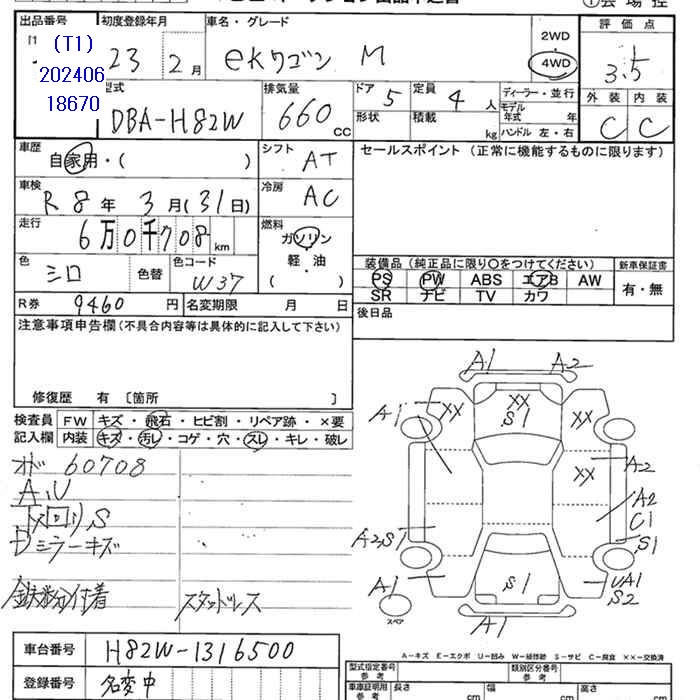 出品番号 初度登録年月 車名・グレード 評価点
(T1)
202406
18670
23 2月 ekワゴン M 2WD 4WD 3.5
型式 排気量 ドア 5 定員 4人 ディーラー・並行 外装 内装
DBA-H82W 660 cc 形状 積載 kg モデル年式 年 C C
ハンドル 左・右
車歴 自家用・( ) シフト AT セールスポイント (正常に機能するものに限ります)
車検 R8年 3月(31日) 冷房 AC
走行 6万0千708km 燃料 ガソリン 軽・油 ( )
色 シロ 色替 色コード W37
装備品 (純正品に限り○をつけてください) 新車保証書
PS PW ABS エアB AW 有・無
SR ナビ TV カワ
R券 9460円 名変期限 月 日
後日品
注意事項申告欄(不具合内容等は具体的に記入して下さい)
修復歴 有 〔箇所 〕
検査員 FW キズ・飛石・ヒビ割・リペア跡・×要
記入欄 内装 キズ・汚レ・コゲ・穴・スレ・キレ・破レ
A1 A2
XX XX XX
S1
A1
XX A2
A2
C1
S1
A2,S1
A1 S1 UA1
S2
A1
スペア
60708
A,U
ミラーキズ
付着
スタッドレス
A-キズ E-エクボ U-凹み W-補修跡 S-サビ C-腐食 ××-交換済
車台番号 H82W-1316500
登録番号 名変中
型式指定番号 参考 類別区分番号 参考
車車証明用 参考 長さ cm 幅 cm 高さ cm